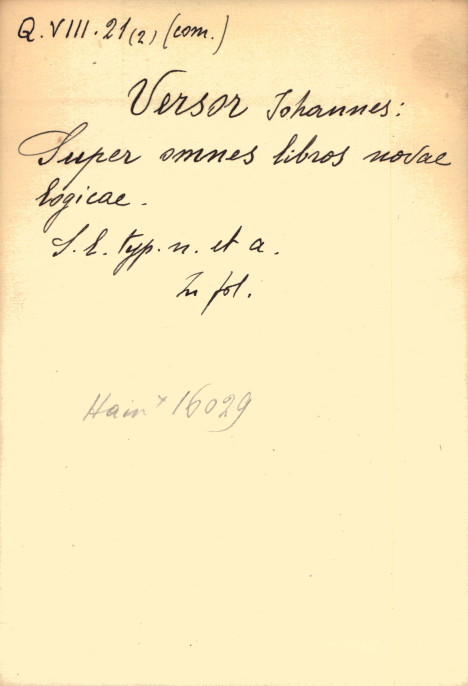 Q. VIII. 21 (2) (com.)
Versor Johannes:
Super omnes libros novae
logicae.
S. l. typ. n. et a.
In fol.
Hain* 16029